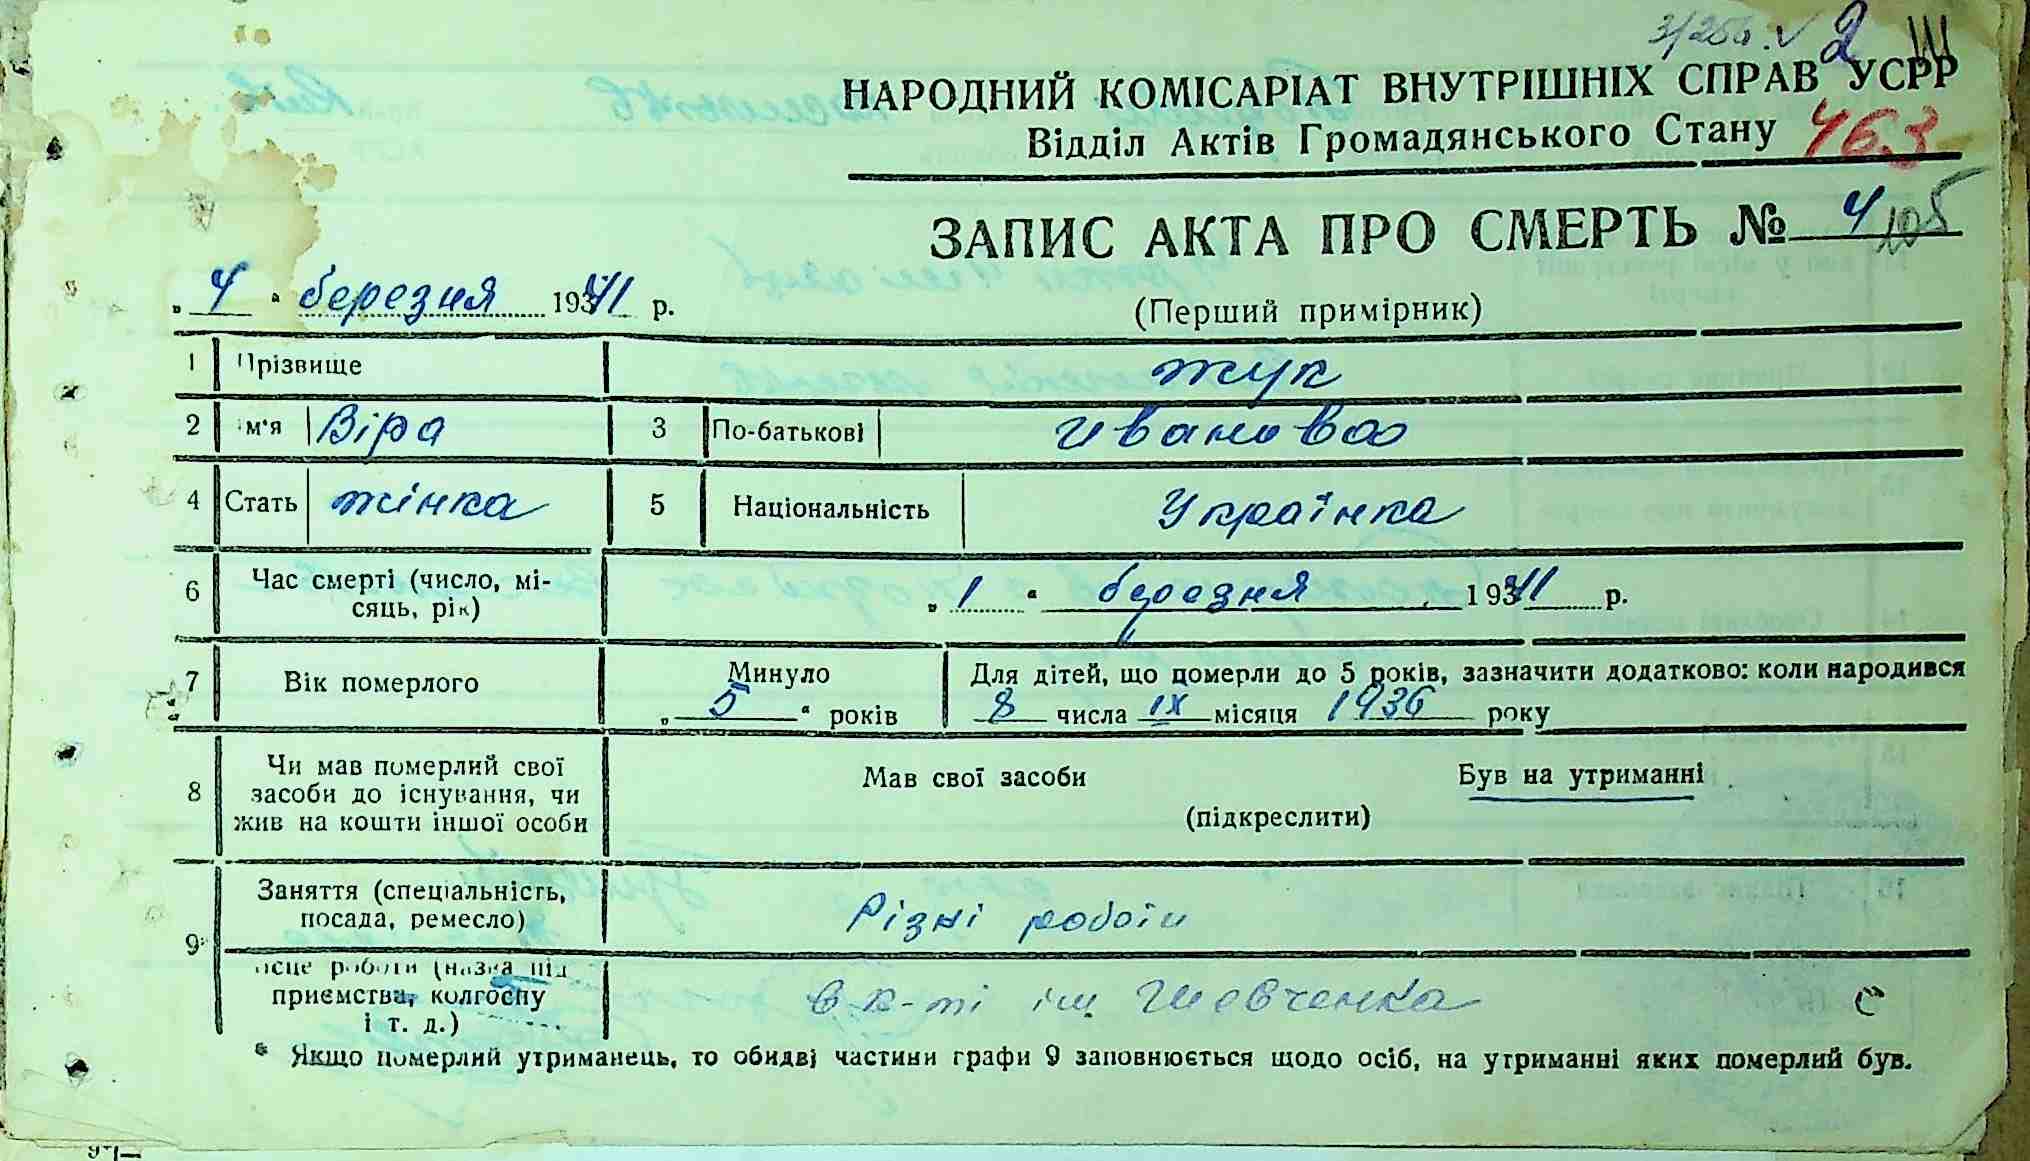 3/256. √ 2 Ш
НАРОДНИЙ КОМІСАРІАТ ВНУТРІШНІХ СПРАВ УСРР
Відділ Актів Громадянського Стану 463
ЗАПИС АКТА ПРО СМЕРТЬ № 4 105
„ 4 “ березня 1941 р.
(Перший примірник)
1 Прізвище Жук
2 м'я Віра 3 По-батькові Ивановна
4 Стать жінка 5 Національність Українка
6 Час смерті (число, мі-
сяць, рік) „ 1 “ березня 1941 р.
7 Вік померлого Минуло „ 5 “ років
Для дітей, що померли до 5 років, зазначити додатково: коли народився
8 числа ІХ місяця 1936 року
8 Чи мав померлий свої
засоби до існування, чи
жив на кошти іншої особи
Мав свої засоби Був на утриманні
(підкреслити)
9 Заняття (спеціальність,
посада, ремесло) Різні роботи
існе роботи (назва під
приємства, колгоспу
і т. д.) в к-ті ім Шевченка С
* Якщо померлий утриманець, то обидві частини графи 9 заповнюється щодо осіб, на утриманні яких померлий був.